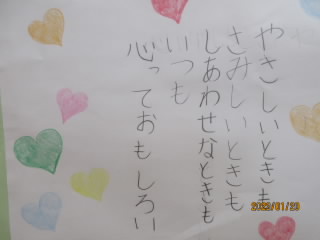 やさしいときも
さみしいときも
しあわせなときも
いつも
心っておもしろい
2022/01/20